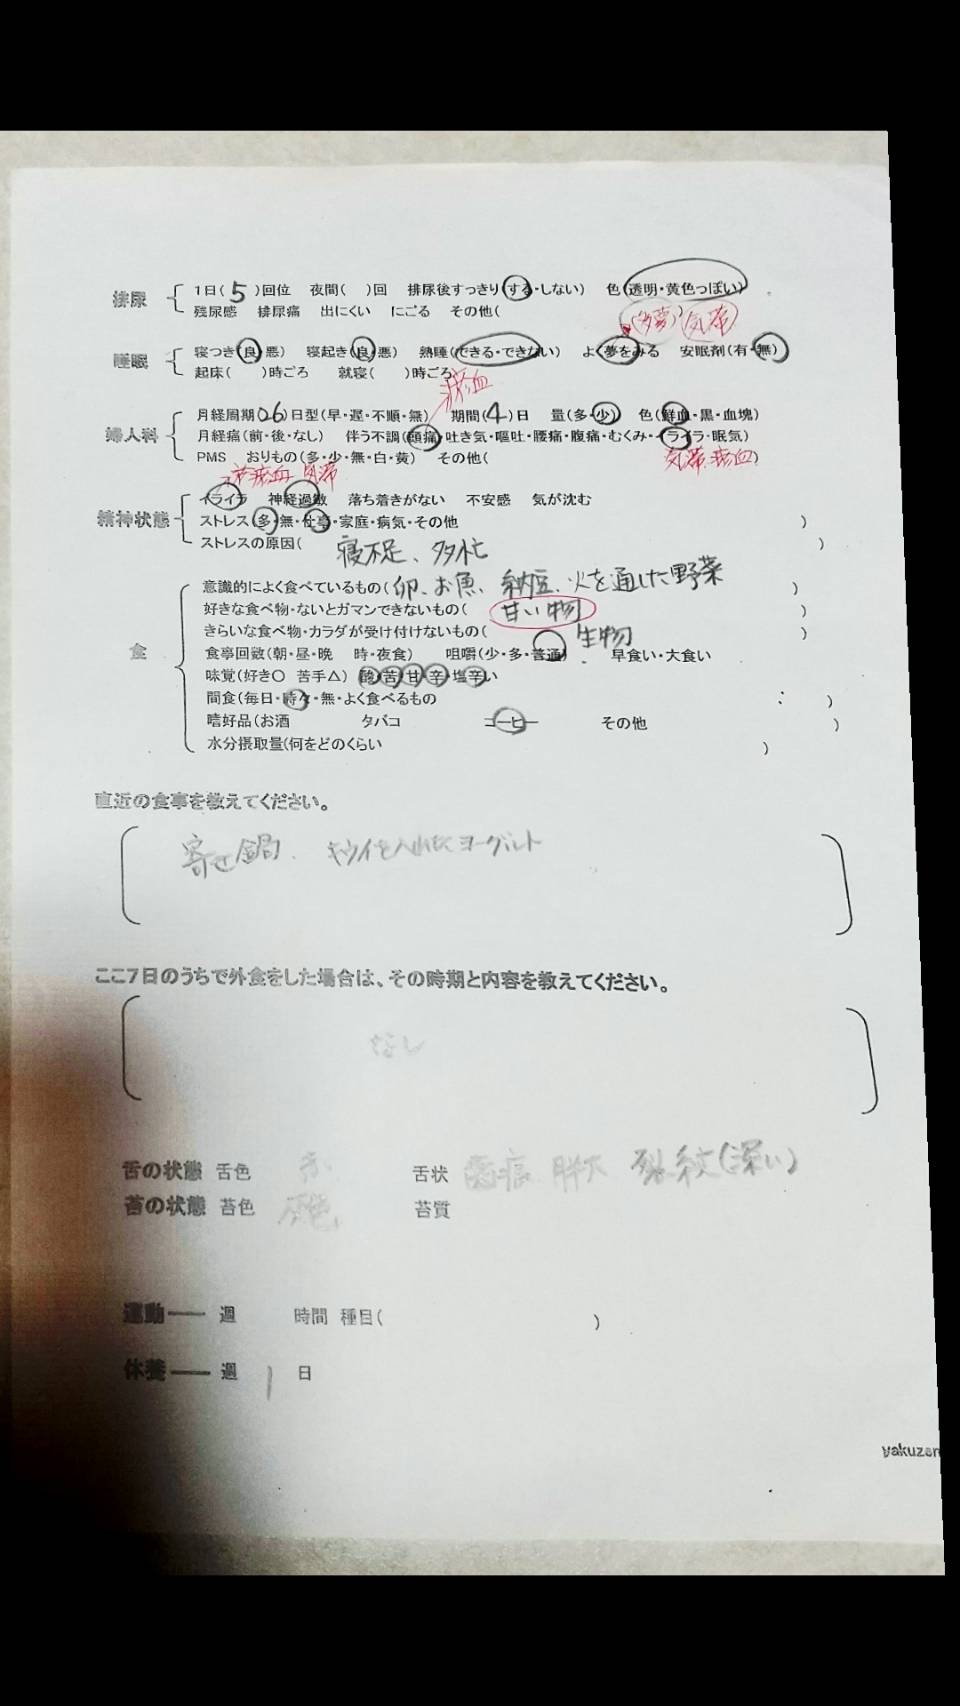 排尿
1日( 5 )回位 夜間( )回 排尿後すっきり(する・しない) 色(透明・黄色っぽい)
残尿感 排尿痛 出にくい にごる その他(
(多夢) 気滞
睡眠
寝つき(良・悪) 寝起き(良・悪) 熟睡(できる・できない) よく夢をみる 安眠剤(有・無)
起床( )時ごろ 就寝( )時ごろ
瘀血
婦人科
月経周期( 26 )日型(早・遅・不順・無) 期間( 4 )日 量(多・少) 色(鮮血・黒・血塊)
月経痛(前・後・なし) 伴う不調(頭痛・吐き気・嘔吐・腰痛・腹痛・むくみ・イライラ・眠気)
PMS おりもの(多・少・無・白・黄) その他( 気滞、瘀血)
瘀血 気滞
精神状態
イライラ 神経過敏 落ち着きがない 不安感 気が沈む
ストレス(多・無・仕事・家庭・病気・その他 )
ストレスの原因( 寝不足、多忙 )
食
意識的によく食べているもの( 卵、お魚、納豆、火を通した野菜 )
好きな食べ物・ないとガマンできないもの( 甘い物 )
きらいな食べ物・カラダが受け付けないもの( 生物 )
食事回数(朝・昼・晩 時・夜食) 咀嚼(少・多・普通) 早食い・大食い
味覚(好き〇 苦手△) 酸・苦・甘・辛・塩辛い
間食(毎日・時々・無・よく食べるもの )
嗜好品(お酒 タバコ コーヒー その他 )
水分摂取量(何をどのくらい )
直近の食事を教えてください。
寄せ鍋、キウイを入れたヨーグルト
ここ7日のうちで外食をした場合は、その時期と内容を教えてください。
なし
舌の状態 舌色 赤 舌状 歯痕 胖大 裂紋(深い)
苔の状態 苔色 苔質
運動 ― 週 時間 種目( )
休養 ― 週 1 日
yakuzen